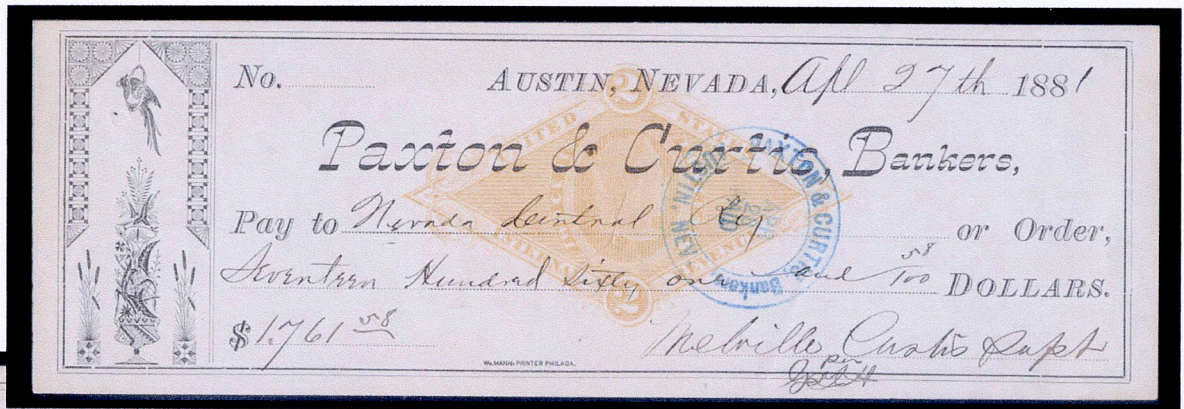 No. AUSTIN, NEVADA, Apl 27th 1881
Paxton & Curtis, Bankers,
Pay to Nevada Central Ry or Order,
Seventeen Hundred Sixty one and 58/100 DOLLARS.
$1.761 58
Melville Curtis Supt
per
WM. MANN. PRINTER PHILADA.
UNITED STATES
2
2
PAXTON & CURTIS, Bankers, AUSTIN, NEV.
PAID
APR